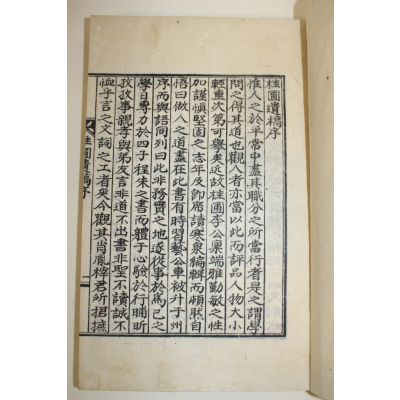 桂圃遺稿序
惟人之於平常中盡其職分之所當行者是之謂學
問之得其道也觀人者亦當以此而評品人物大小
輕重次第可擧矣近故桂圃李公稟端雅勤敏之性
加謹愼堅固之志年及卽席讀寒泉編輯而頗然自
悟曰做人之道盡在此書有時習藝公車被升于州
序而與語同列曰此非務實之地遂從事於爲己之
學日專力於四子程朱之書而體于心驗於行晡昕
孜孜事親孝與弟友言非道不出書非聖不讀誠不
恤乎言之文詞之工者矣今觀其肖胤梓君所招摭
桂圃遺稿序
一